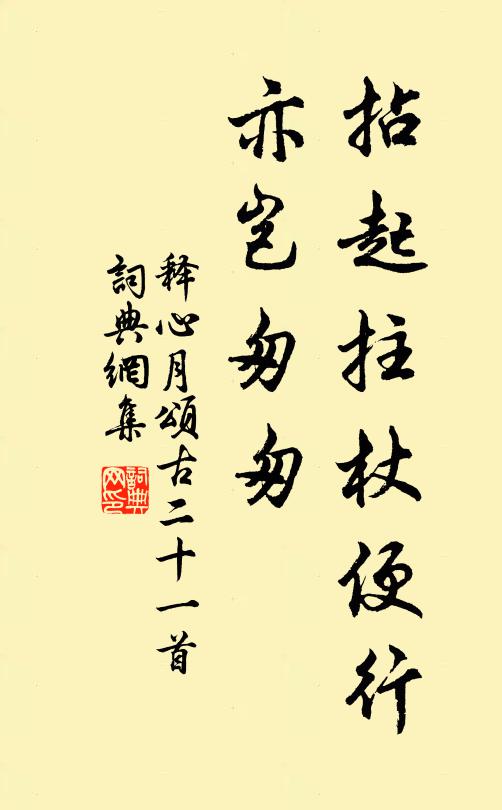 拈起拄杖便行
亦岂匆匆
释心月頌古二十一首
詞典網集
詞典网印